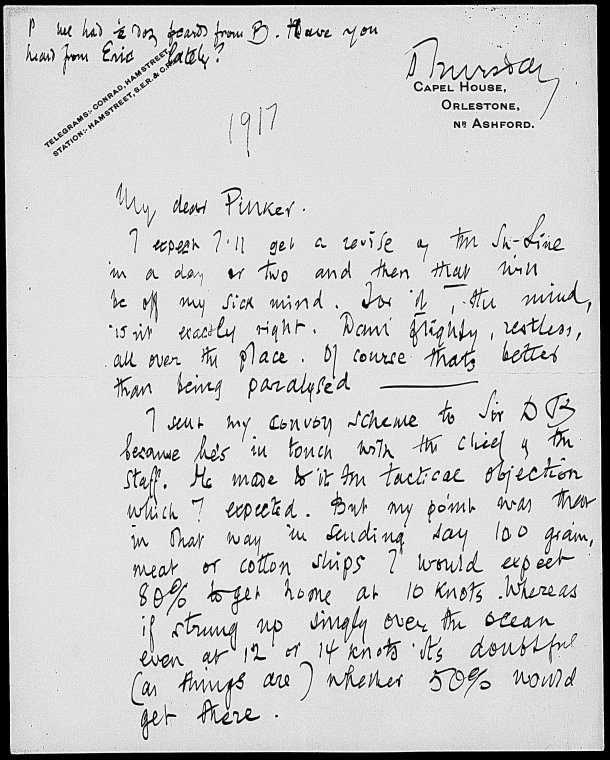 P we had ½ doz cards from B. Have you
heard from Eric lately?
TELEGRAMS:- CONRAD, HAMSTREET.
STATION:- HAMSTREET, S.E.R. & C.R.
Thursday
CAPEL HOUSE,
ORLESTONE,
NR ASHFORD.
1917
My dear Pinker.
I expect I'll get a revise of the Sh-Line
in a day or two and then that will
be off my sick mind. For it, the mind,
isn't exactly right. Damn flighty, restless,
all over the place. Of course that's better
than being paralysed
I sent my convoy scheme to Sir D B
because he's in touch with the chief of the
Staff. He made to it the tactical objection
which I expected. But my point was that
in that way in sending say 100 grain,
meat or cotton ships I would expect
80% to get home at 10 knots. Whereas
if strung up singly over the ocean
even at 12 or 14 knots its doubtful
(as things are) whether 50% would
get there.